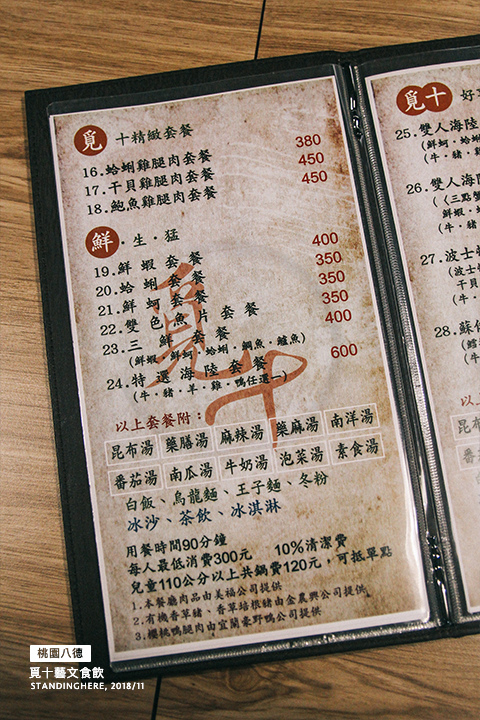 覓 十精緻套餐
16.蛤蜊雞腿肉套餐 380
17.干貝雞腿肉套餐 450
18.鮑魚雞腿肉套餐 450
鮮．生．猛
19.鮮蝦套餐 400
20.蛤蜊套餐 350
21.鮮蚵套餐 350
22.雙色魚片套餐 350
23.三鮮套餐 400
(鮮蝦．鮮蚵．蛤蜊．鯛魚．鱸魚)
24.特選海陸套餐 600
(牛．豬．羊．雞．鴨任選一)
覓十
以上套餐附：
昆布湯 藥膳湯 麻辣湯 藥麻湯 南洋湯
番茄湯 南瓜湯 牛奶湯 泡菜湯 素食湯
白飯、烏龍麵、王子麵、冬粉
冰沙、茶飲、冰淇淋
用餐時間90分鐘
每人最低消費300元 10%清潔費
兒童110公分以上共鍋費120元，可抵單點
1.本餐廳肉品由美福公司提供
2.有機香草豬．香草培根豬由金農興公司提供
3.櫻桃鴨腿肉由宜蘭豪野鴨公司提供
覓十 好
25.雙人海陸
(鮮蚵．蛤蜊
(牛．豬．雞
26.雙人海
(〈三點蟹
鮮蝦．蛤
(牛．豬
27.波士
(波士
干貝
(牛
28.蘇
(鱈
牛
以上
昆布
番茄
桃園八德
覓十藝文食飲
STANDINGHERE, 2018/11